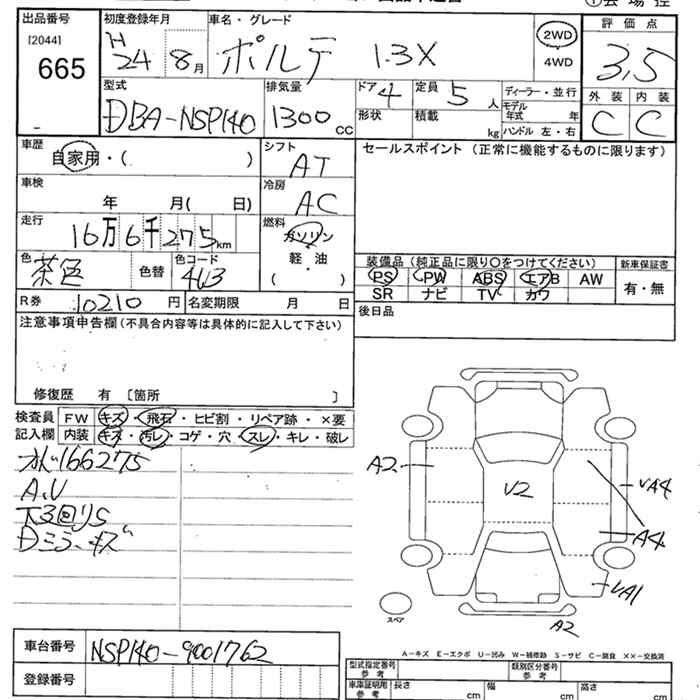 出品番号
[2044]
665
初度登録年月
H 24 年 8 月
車名・グレード
ポルテ 1.3X
2WD
4WD
評価点
3.5
外装 内装
C C
型式
DBA-NSP140
排気量
1300 cc
ドア 4
定員 5 人
形状
積載 kg
ディーラー・並行
モデル年式 年
ハンドル 左・右
車歴
自家用・( )
シフト
AT
セールスポイント (正常に機能するものに限ります)
車検
年 月( 日)
冷房
AC
走行
16万6千275km
燃料
ガソリン
軽・油
( )
色
茶色
色替
色コード
4U3
装備品 (純正品に限り○をつけてください)
新車保証書
PS PW ABS エアB AW
有・無
SR ナビ TV カワ
R券 10210 円 名変期限 月 日
後日品
注意事項申告欄 (不具合内容等は具体的に記入して下さい)
修復歴 有 [箇所 ]
検査員 FW キズ・飛石・ヒビ割・リペア跡・×要
記入欄 内装 キズ・汚レ・コゲ・穴・スレ・キレ・破レ
166275
A,U
下回りS
Dミラーキズ
A2
U2
UA4
A4
UA1
A2
スペア
A-キズ E-エクボ U-凹み W-補修跡 S-サビ C-腐食 ××-交換済
車台番号 NSP140-9001762
登録番号
型式指定番号
参考
類別区分番号
参考
車庫証明用
参考
長さ cm 幅 cm 高さ cm